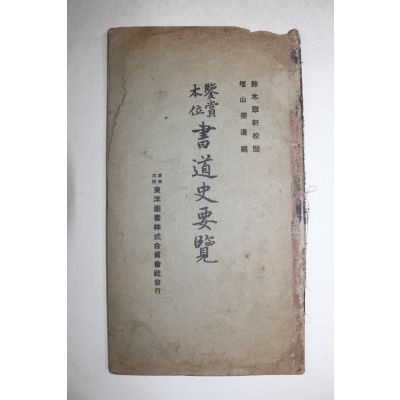 鈴木翠軒校閲
増山崇道編
鑒賞本位 書道史要覽
東京 大阪 東洋圖書株式合資會社發行